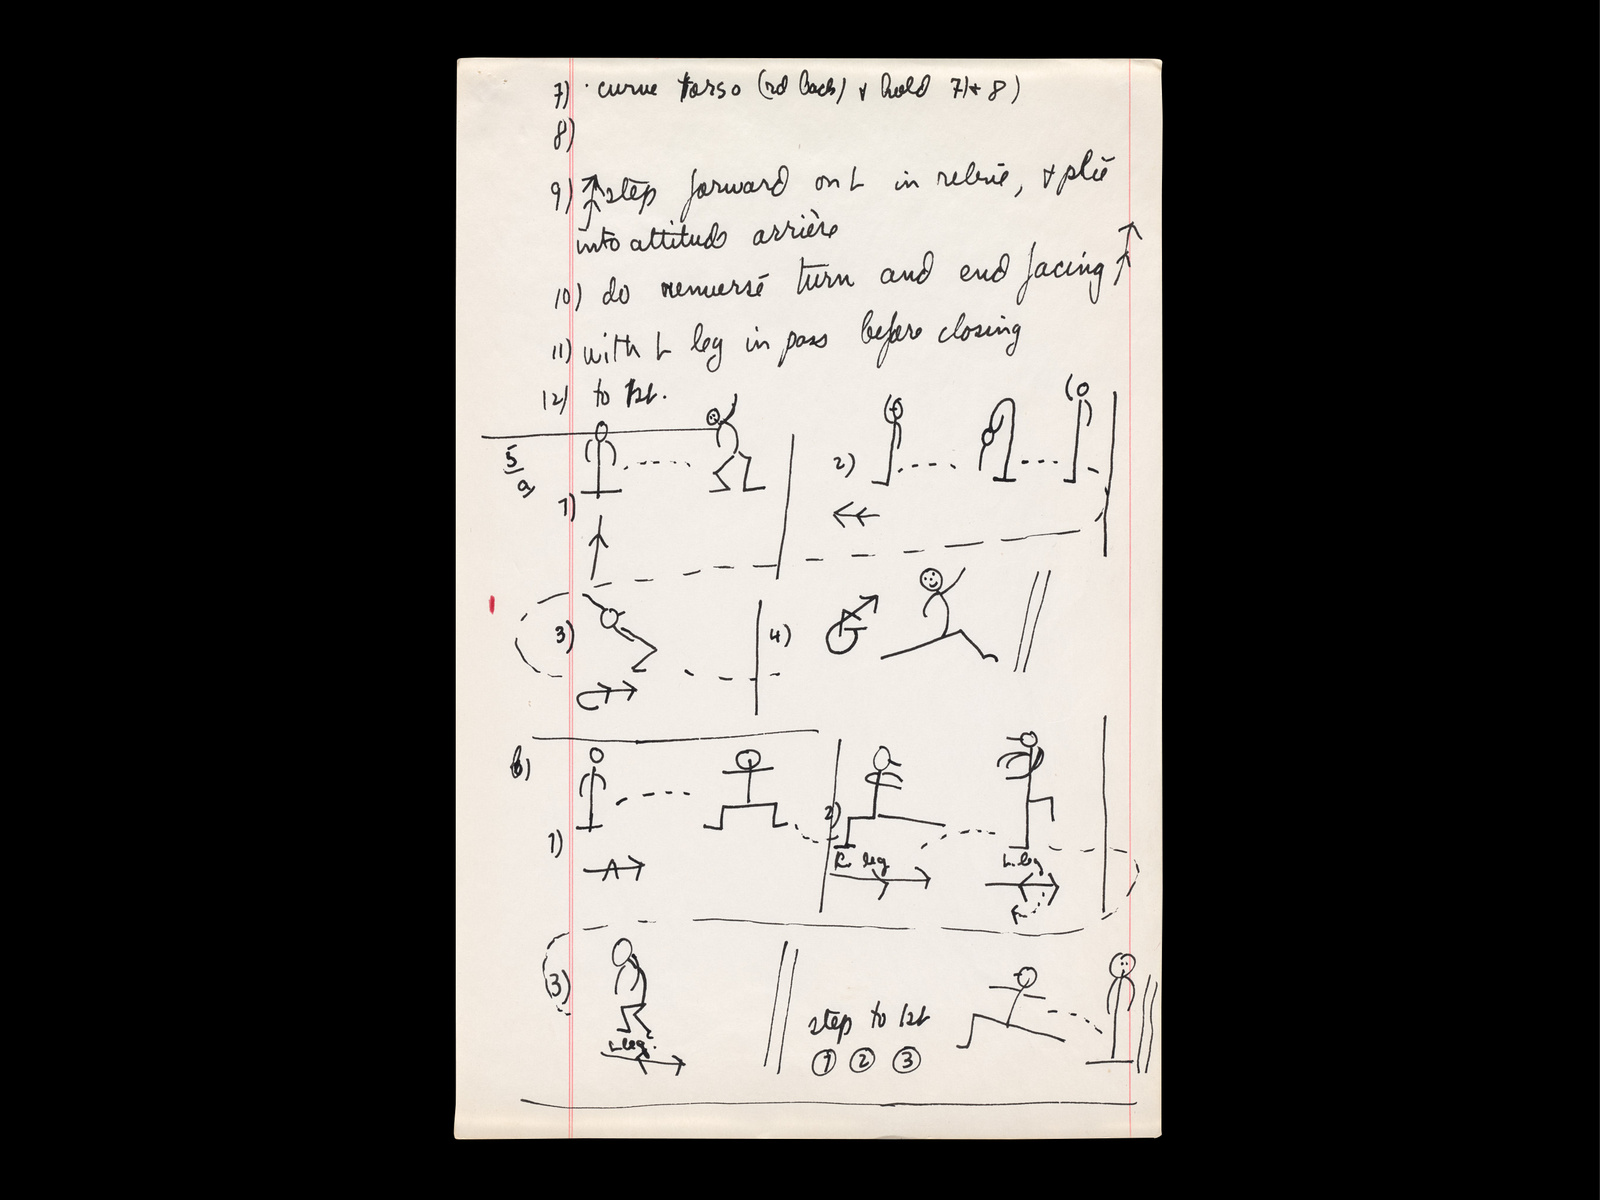 7) · curve torso (rd back) & hold 7)+ 8)
8)
9) step forward on L in relevé, & plié
into attitude arrière
10) do renversé turn and end facing
11) with L leg in pass before closing
12) to 1st.
5/a)
1)
2)
3)
4)
b)
1)
2)
R. leg
L. leg
3)
L leg.
step to 1st
1 2 3